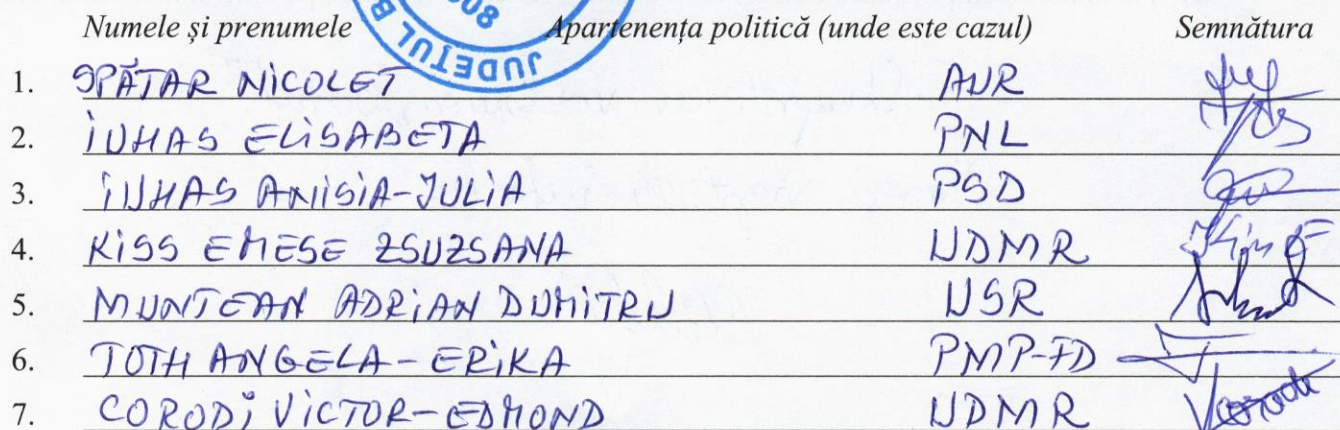 808
JUDEȚUL B
Numele și prenumele Apartenența politică (unde este cazul) Semnătura
1. SPĂTAR NICOLET AUR
2. IUHAS ELISABETA PNL
3. IUHAS ANISIA-JULIA PSD
4. KISS EMESE ZSUZSANA UDMR
5. MUNTEAN ADRIAN DUMITRU USR
6. TOTH ANGELA-ERIKA PMP-FD
7. CORODI VICTOR-EDMOND UDMR